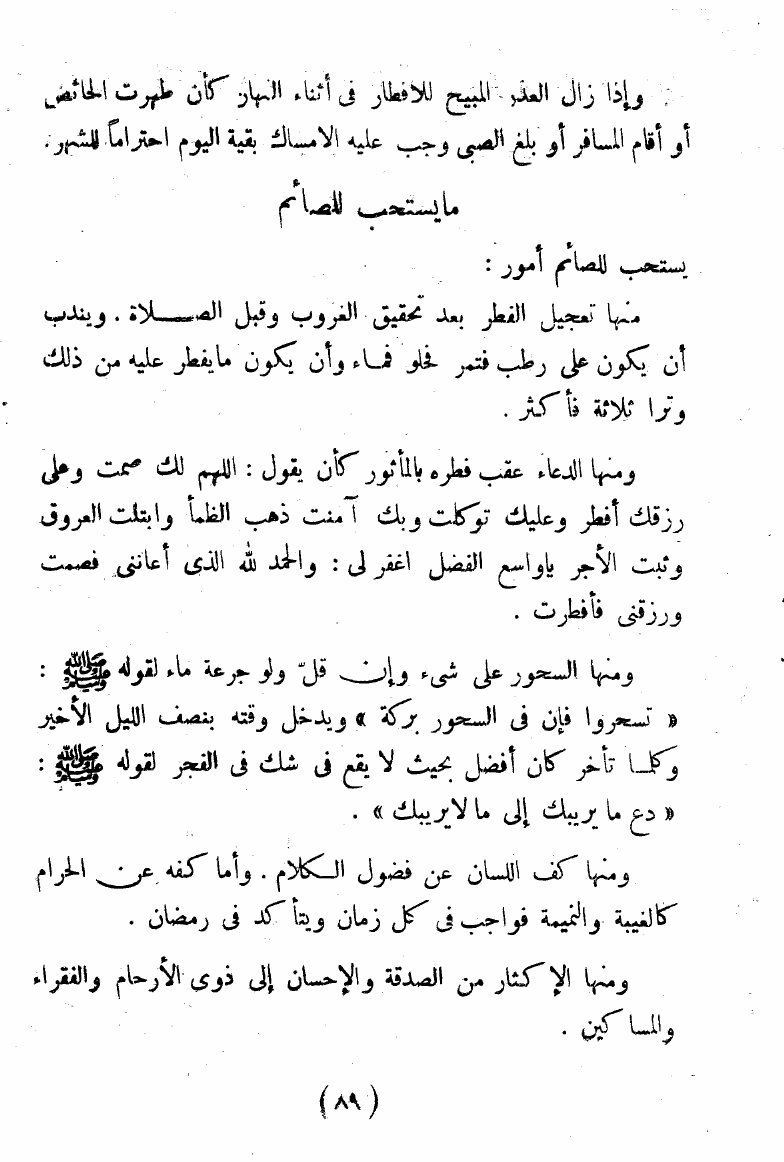 وإذا زال العذر المبيح للافطار فى أثناء النهار كأن طهرت الحائض
أو أقام المسافر أو بلغ الصبى وجب عليه الامساك بقية اليوم احتراماً للشهر.
مايستحب للصائم
يستحب للصائم أمور :
منها تعجيل الفطر بعد تحقيق الغروب وقبل الصلاة . ويندب
أن يكون على رطب فتمر فحلو فماء وأن يكون مايفطر عليه من ذلك
وترا ثلاثة فأكثر .
ومنها الدعاء عقب فطره بالمأثور كأن يقول : اللهم لك صمت وعلى
رزقك أفطر وعليك توكلت وبك آمنت ذهب الظمأ وابتلت العروق
وثبت الأجر ياواسع الفضل اغفر لى : والحمد لله الذى أعاننى فصمت
ورزقنى فأفطرت .
ومنها السحور على شىء وإن قلّ ولو جرعة ماء لقوله ﷺ :
« تسحروا فإن فى السحور بركة » ويدخل وقته بنصف الليل الأخير
وكلما تأخر كان أفضل بحيث لا يقع فى شك فى الفجر لقوله ﷺ :
« دع ما يريبك إلى ما لايريبك » .
ومنها كف اللسان عن فضول الكلام . وأما كفه عن الحرام
كالغيبة والنميمة فواجب فى كل زمان ويتأكد فى رمضان .
ومنها الإكثار من الصدقة والإحسان إلى ذوى الأرحام والفقراء
والمساكين .
( ٨٩ )